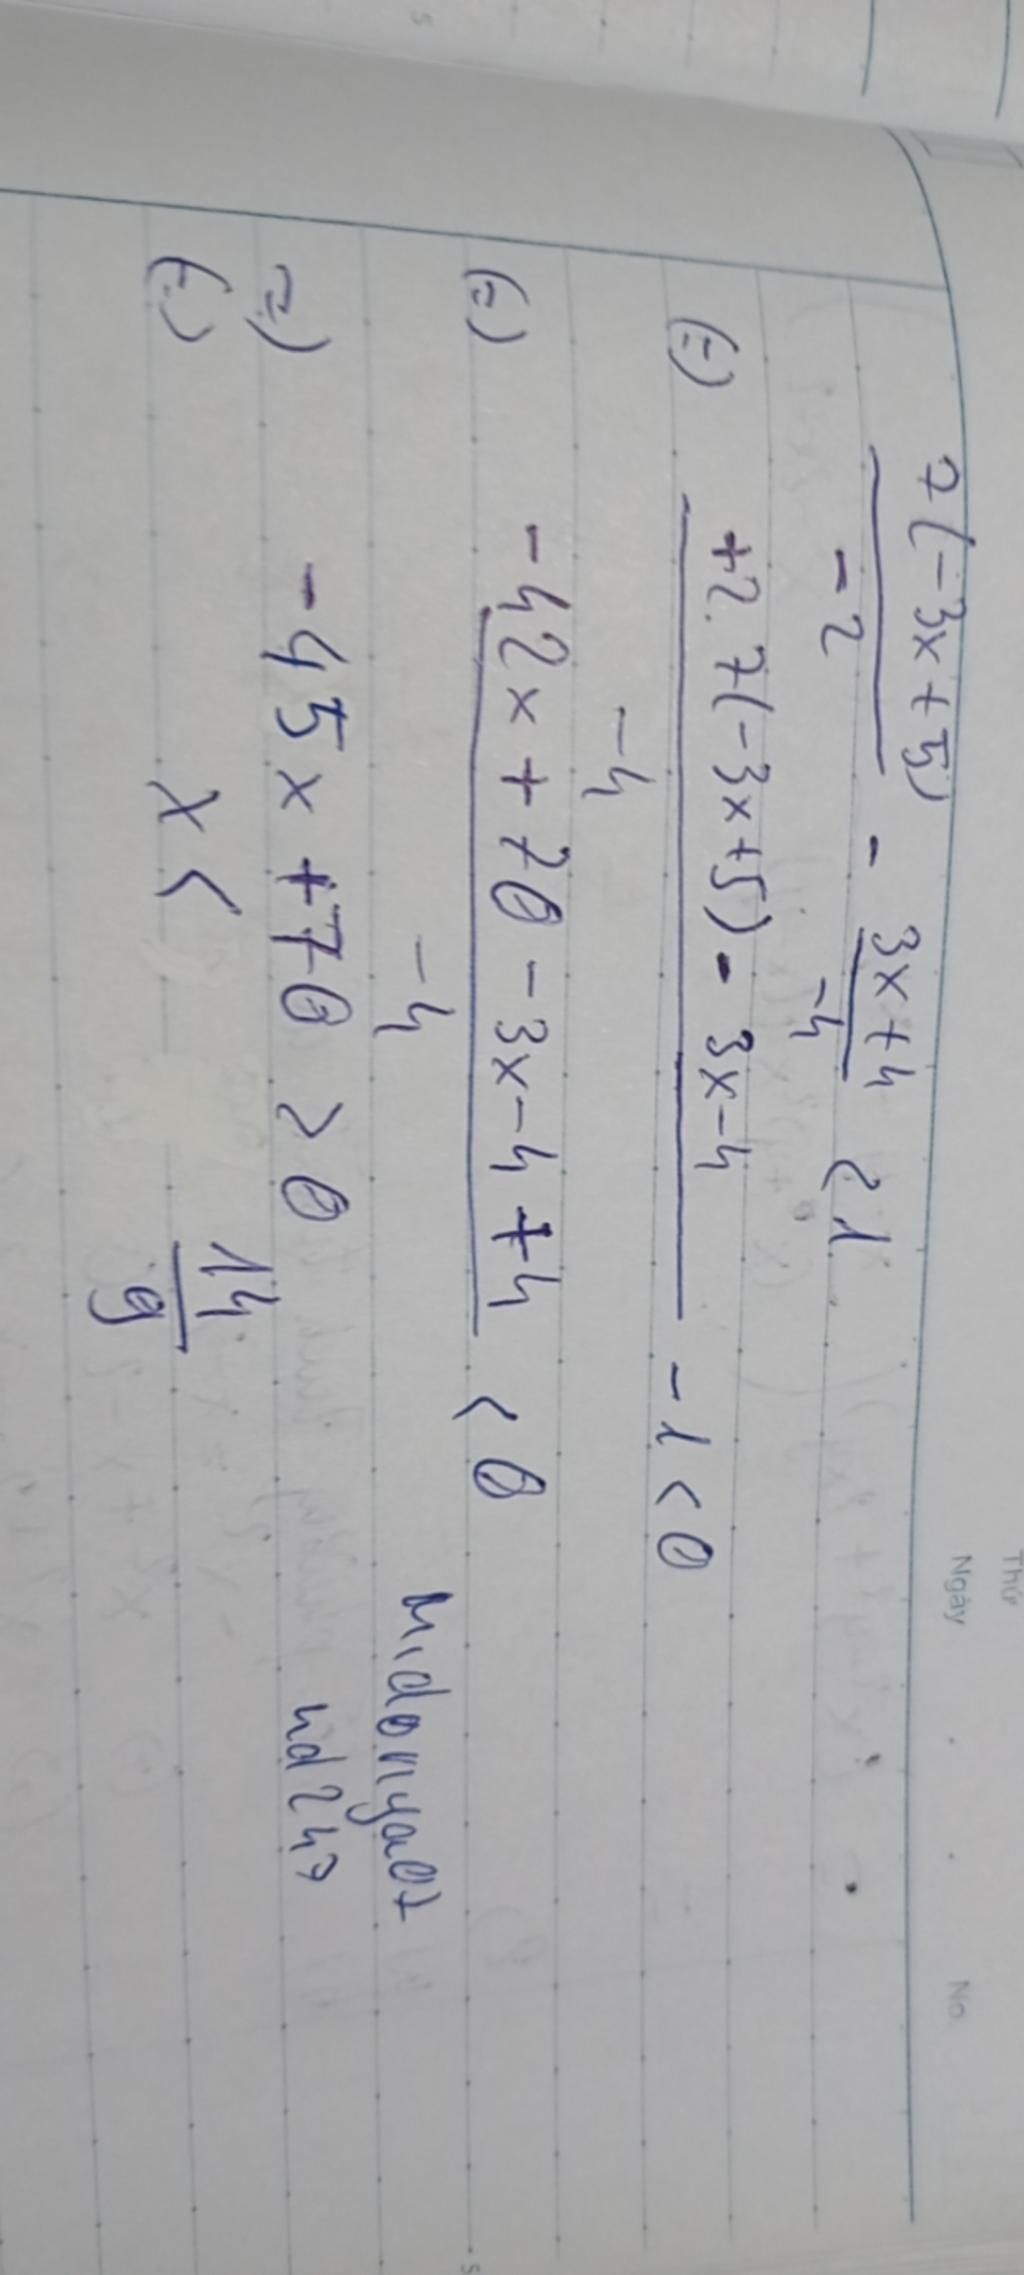 Thứ
Ngày No.
7(-3x+5)/-2 - 3x+4/-4 < 1
(=) +2.7(-3x+5) - 3x-4/-4 - 1 < 0
(=) -42x + 70 - 3x-4 + 4/-4 < 0
(=) -45x + 70 > 0
(=) x < 14/9